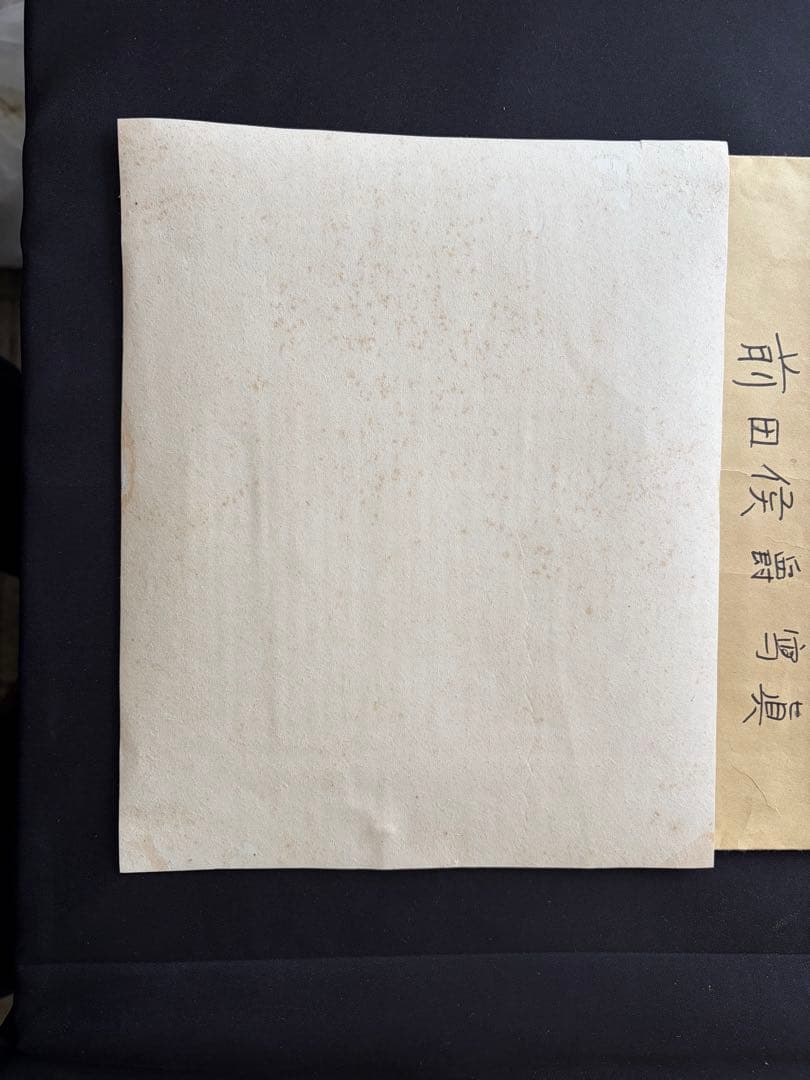 前田侯爵寫真